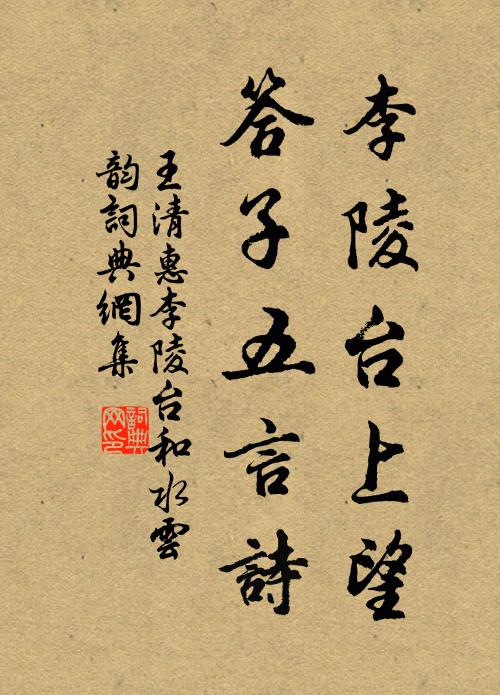 李陵台上望
答子五言詩
王清惠李陵台和水雲
韵詞典網集
詞典网印